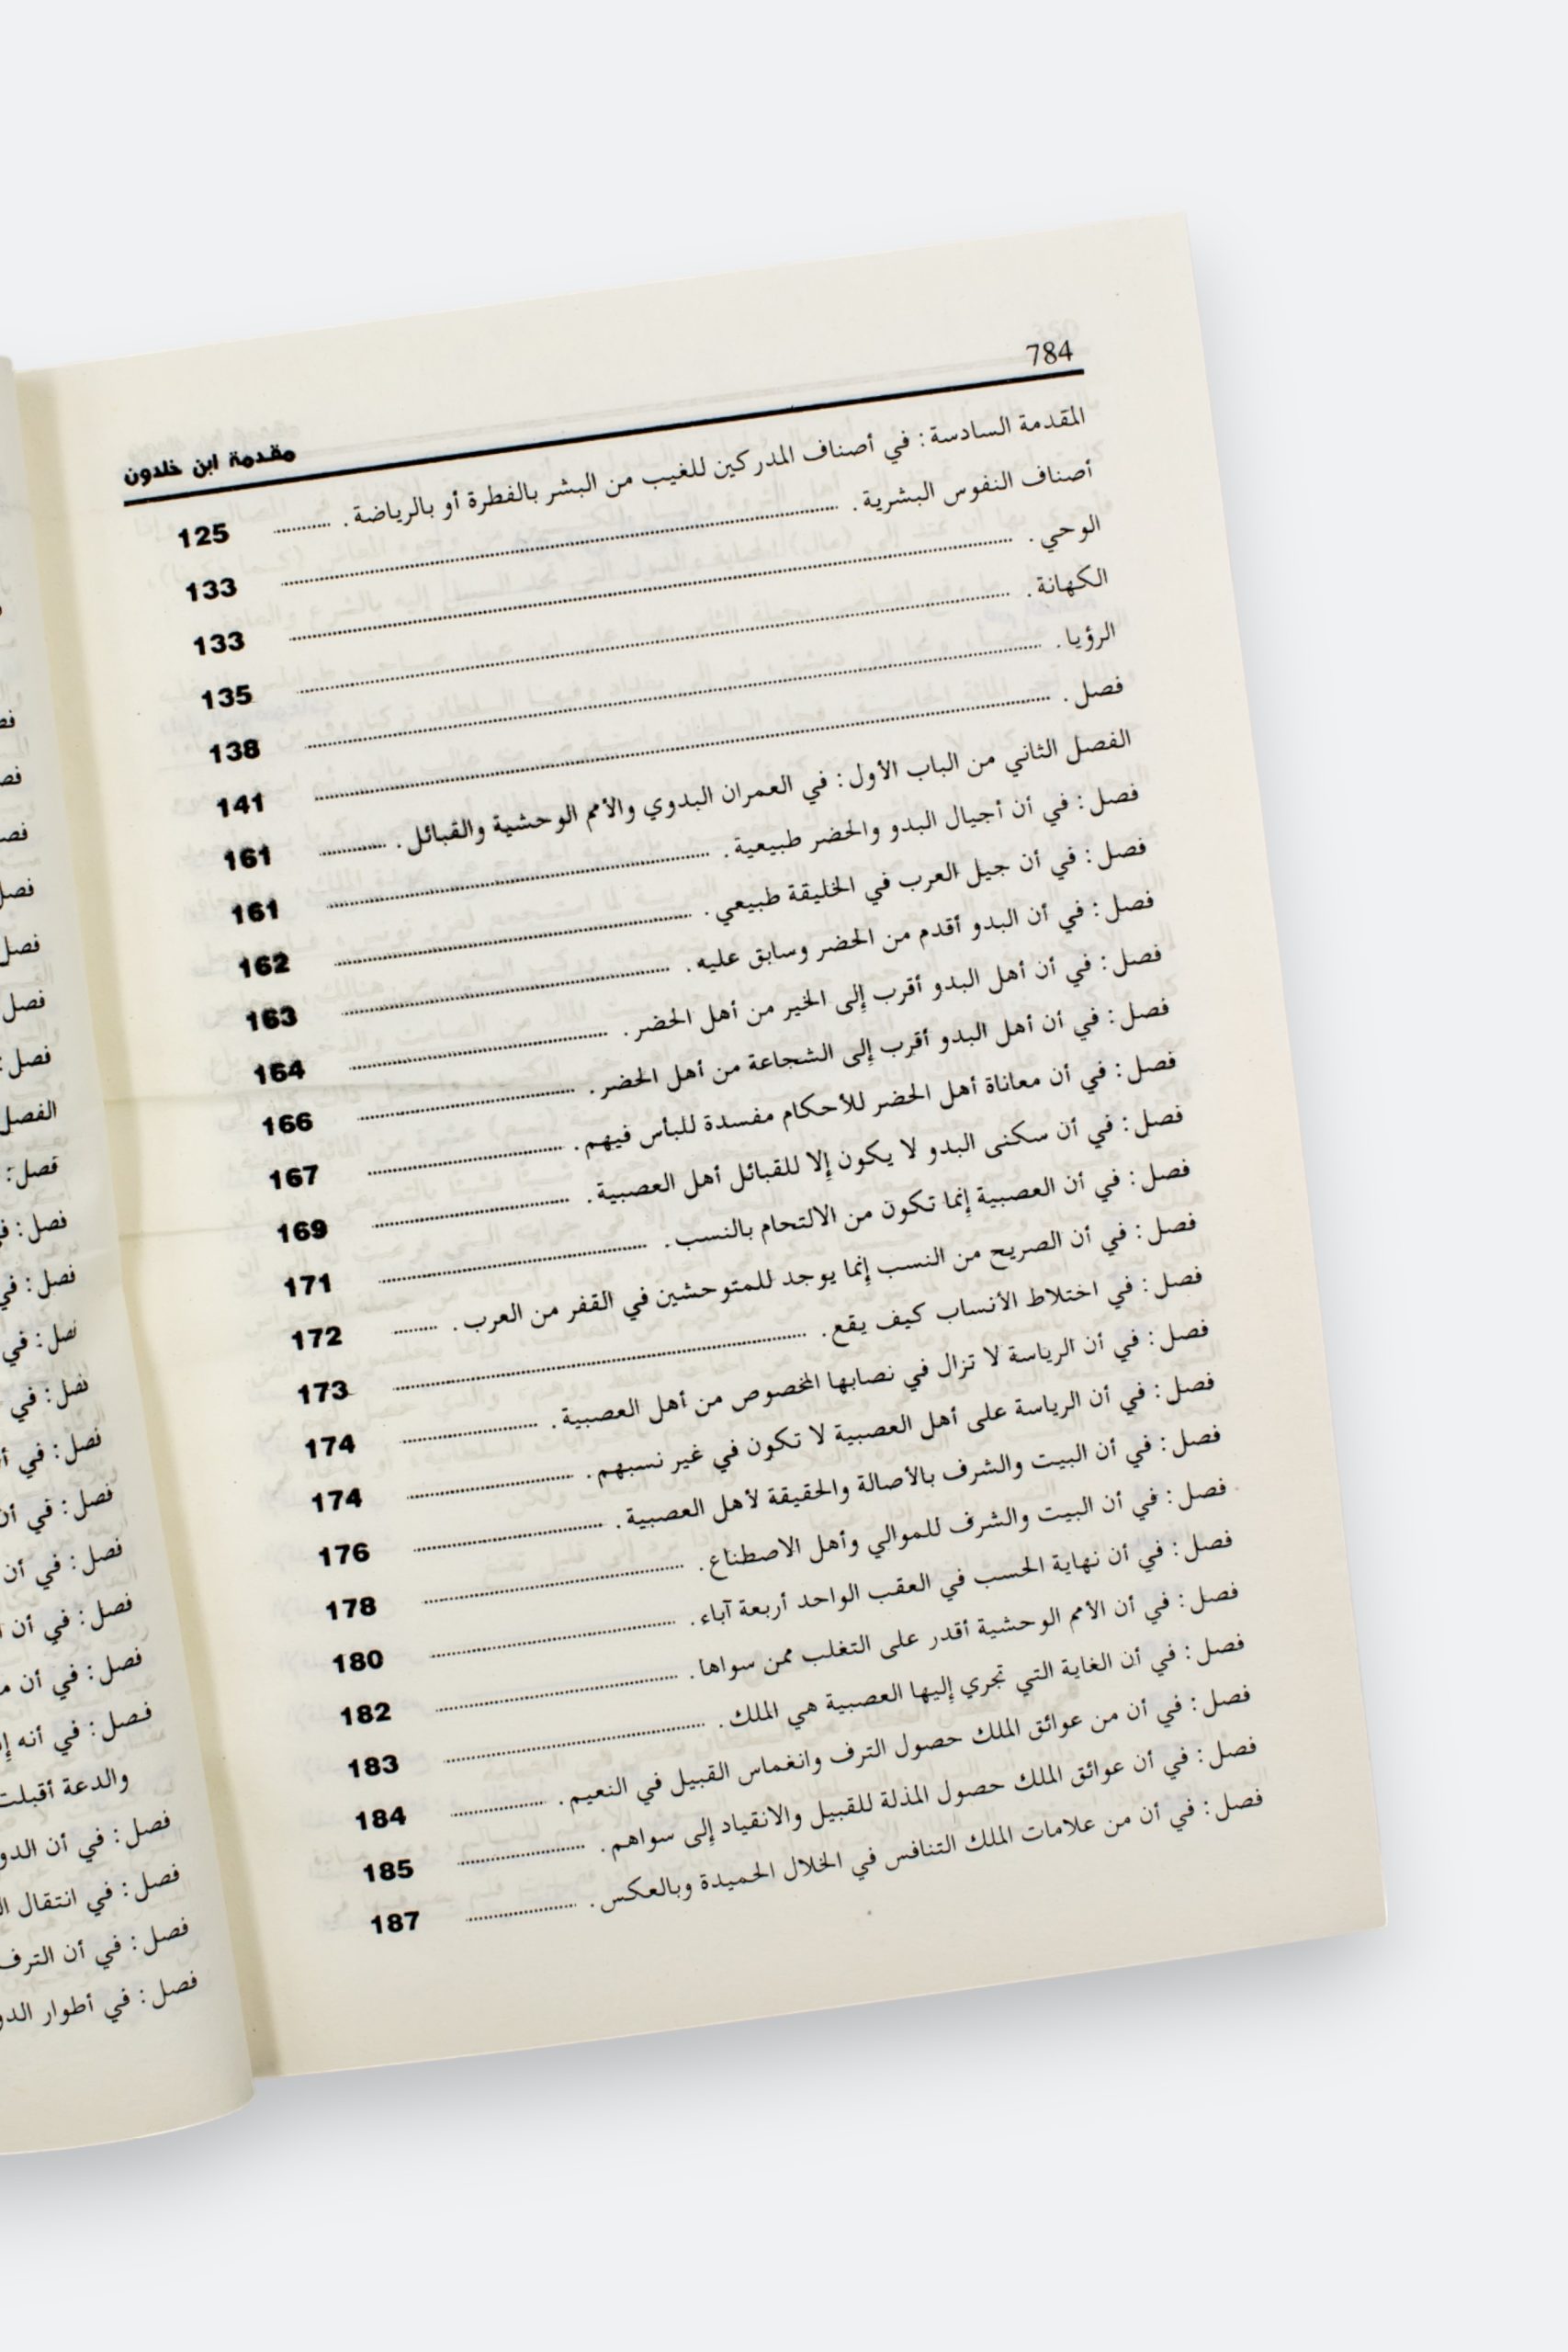 784
مقدمة ابن خلدون
المقدمة السادسة: في أصناف المدركين للغيب من البشر بالفطرة أو بالرياضة. 125
أصناف النفوس البشرية. 133
الوحي. 133
الكهانة. 135
الرؤيا. 138
فصل. 141
الفصل الثاني من الباب الأول: في العمران البدوي والأمم الوحشية والقبائل. 161
فصل: في أن أجيال البدو والحضر طبيعية. 161
فصل: في أن جيل العرب في الخليقة طبيعي. 162
فصل: في أن البدو أقدم من الحضر وسابق عليه. 163
فصل: في أن أهل البدو أقرب إلى الخير من أهل الحضر. 164
فصل: في أن أهل البدو أقرب إلى الشجاعة من أهل الحضر. 166
فصل: في أن معاناة أهل الحضر للأحكام مفسدة للبأس فيهم. 167
فصل: في أن سكنى البدو لا يكون إلا للقبائل أهل العصبية. 169
فصل: في أن العصبية إنما تكون من الالتحام بالنسب. 171
فصل: في أن الصريح من النسب إنما يوجد للمتوحشين في القفر من العرب. 172
فصل: في اختلاط الأنساب كيف يقع. 173
فصل: في أن الرياسة لا تزال في نصابها المخصوص من أهل العصبية. 174
فصل: في أن الرياسة على أهل العصبية لا تكون في غير نسبهم. 174
فصل: في أن البيت والشرف بالأصالة والحقيقة لأهل العصبية. 176
فصل: في أن البيت والشرف للموالي وأهل الاصطناع. 178
فصل: في أن نهاية الحسب في العقب الواحد أربعة آباء. 180
فصل: في أن الأمم الوحشية أقدر على التغلب ممن سواها. 182
فصل: في أن الغاية التي تجري إليها العصبية هي الملك. 183
فصل: في أن من عوائق الملك حصول الترف وانغماس القبيل في النعيم. 184
فصل: في أن عوائق الملك حصول المذلة للقبيل والانقياد إلى سواهم. 185
فصل: في أن من علامات الملك التنافس في الخلال الحميدة وبالعكس. 187
فصل
فصل
فصل:
الفصل
فصل:
فصل:
فصل: في
فصل: في
فصل: في
فصل: في
فصل: في أن
فصل: في أن
فصل: في أن
فصل: في أن
فصل: في أنه
والدعة أقبلت
فصل: في أن
فصل: في انتقال
فصل: في أن الترف
فصل: في أطوار